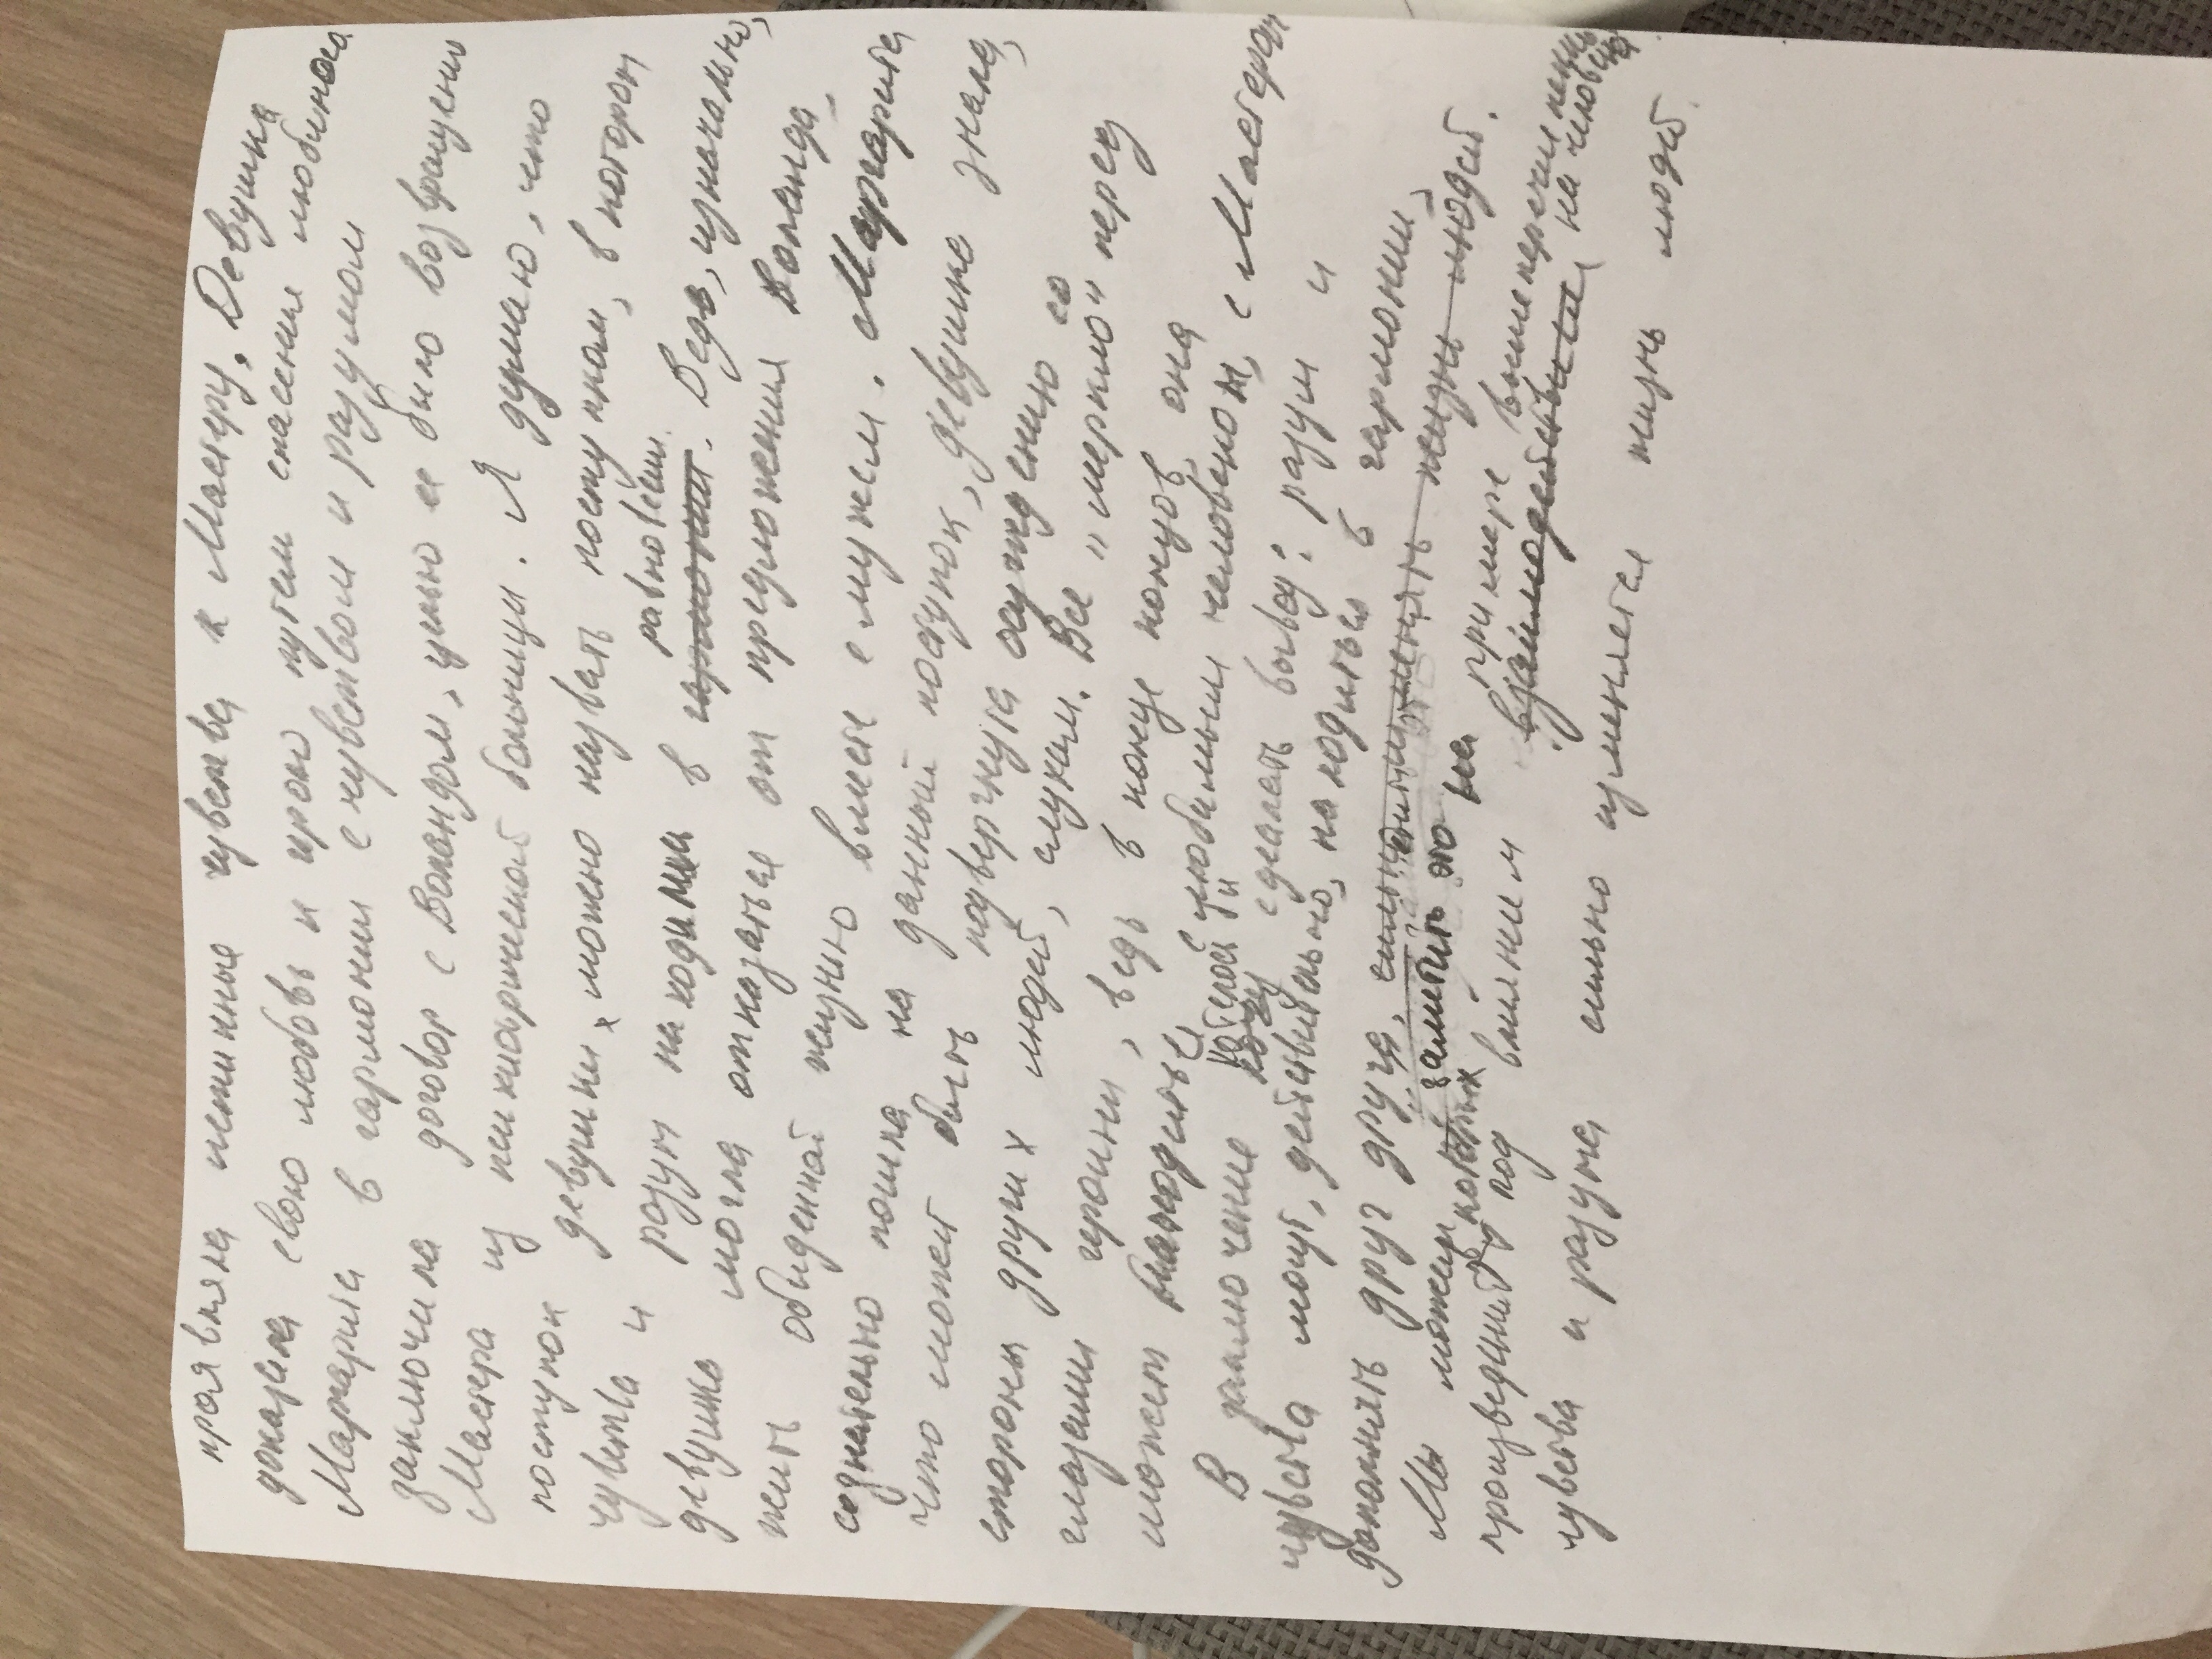 проявляла истинные чувства к Мастеру. Девушка
доказала свою любовь к герою путем спасения любимого.
Маргарита в гармонии с чувством и разумом
заключила договор с Воландом, целью ее было возвращение
Мастера из психиатрической больницы. Я думаю, что
поступок девушки, можно назвать поступком, в котором
чувства и разум находились в гармонии равновесии. Ведь, изначально,
девушка могла отказаться от предложения Воланда,
жить обыденной жизнью вместе с мужем. Маргарита
сознательно пошла на данный поступок, девушка знала,
что может быть подвергнута осуждению со
стороны других людей, слухам. Все „меркло" перед
глазами героини, ведь в конце концов, она
может находиться с любимым человеком, с Мастером
В заключение хочу хотелось бы сделать вывод: разум и
чувства могут, действительно, находиться в гармонии,
дополнять друг друга, сильно изменять жизнь людей.
Мы можем заметить это на примере вышеперечисленных
произведений, в которых под влиянием взаимодействия на человека
чувства и разума сильно изменяется жизнь людей.